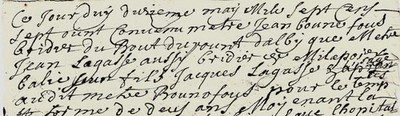 Ce Jourduy duzieme may Mile Sept cens
Sept ount Convenu metre Jean bounefous
bridier du Bout du pount dalby que Metre
Jean Lagasse aussy bridier de
balie son fils Jacques Lagasse
audit metre Bounofous pour le temp
et terme de deus ans Moyenant la